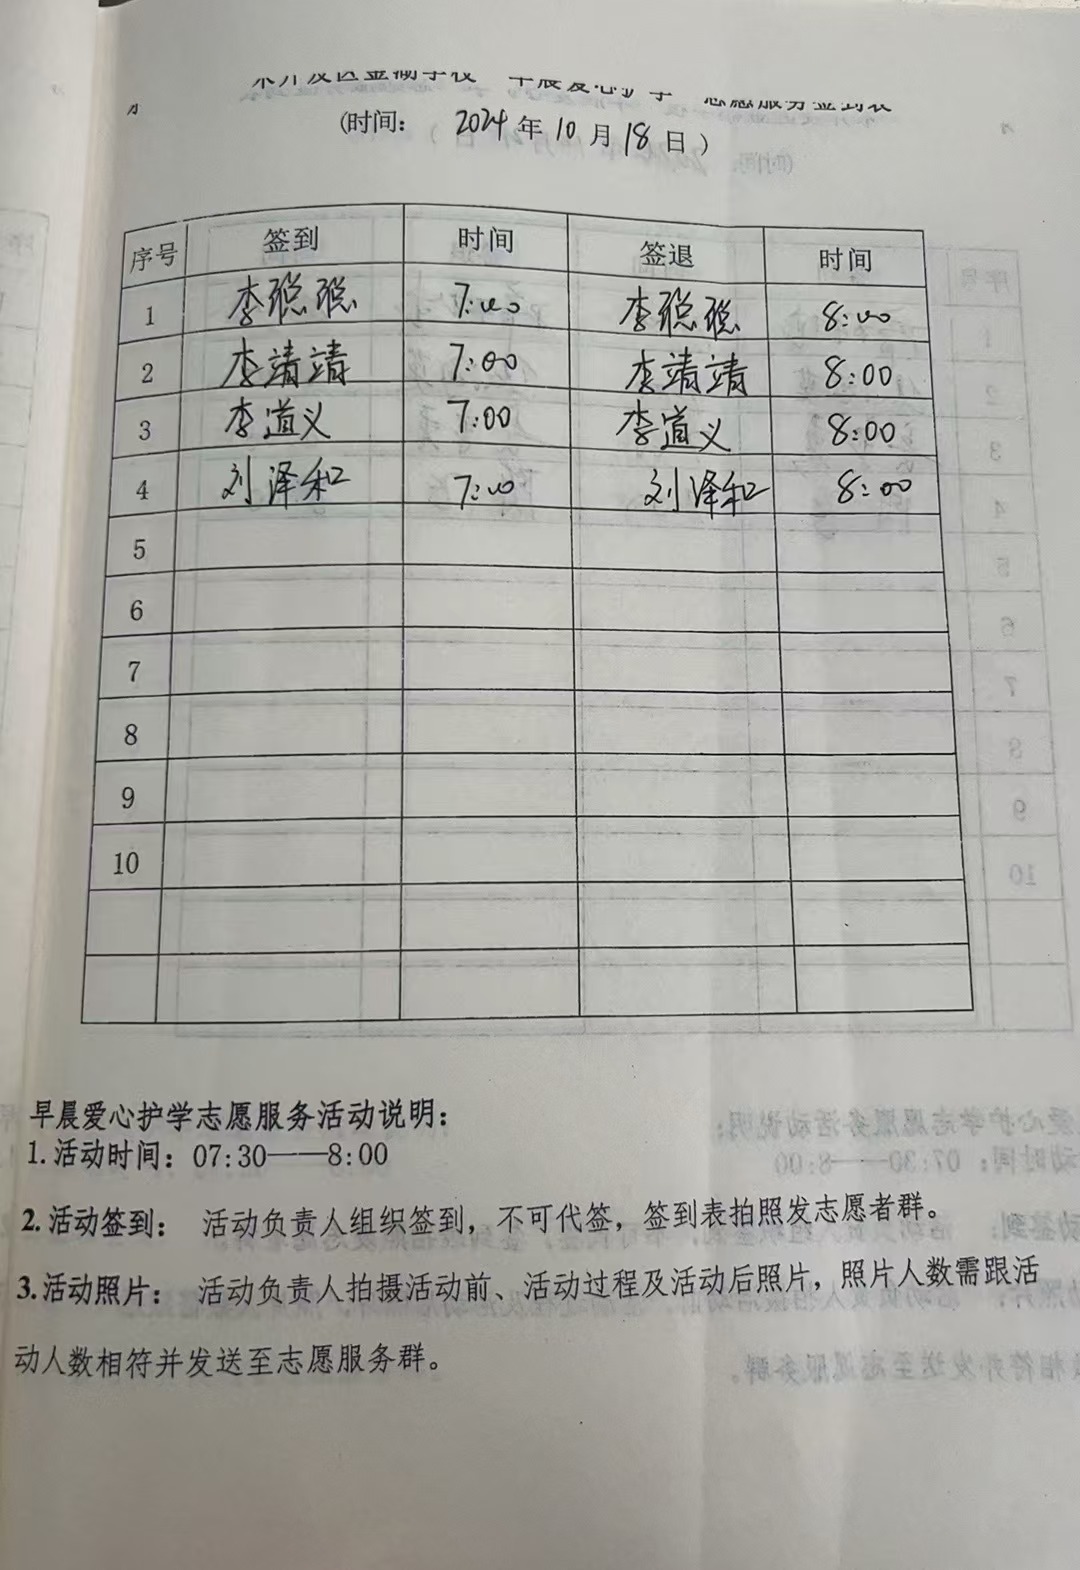 早晨爱心护学 志愿服务签到表
(时间： 2024 年 10 月 18 日)
序号 签到 时间 签退 时间
1 李聪聪 7:00 李聪聪 8:00
2 李靖靖 7:00 李靖靖 8:00
3 李道义 7:00 李道义 8:00
4 刘泽和 7:00 刘泽和 8:00
5
6
7
8
9
10
早晨爱心护学志愿服务活动说明：
1.活动时间：07:30——8:00
2.活动签到： 活动负责人组织签到，不可代签，签到表拍照发志愿者群。
3.活动照片： 活动负责人拍摄活动前、活动过程及活动后照片，照片人数需跟活
动人数相符并发送至志愿服务群。